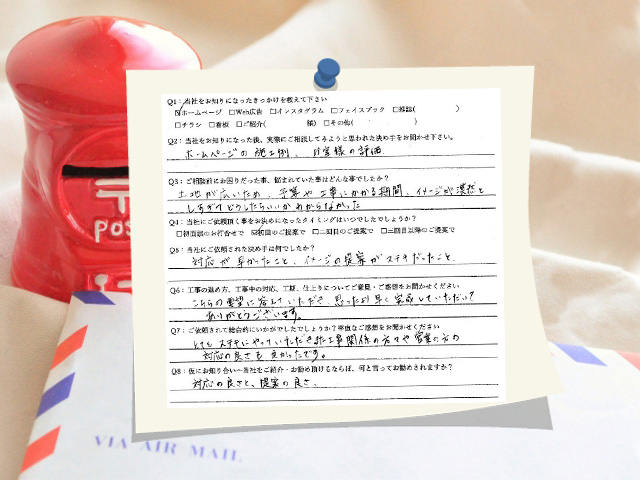 Q1：当社をお知りになったきっかけを教えて下さい
☑ホームページ □Web広告 □インスタグラム □フェイスブック □雑誌( )
□チラシ □看板 □ご紹介( 様) □その他( )
Q2：当社をお知りになった後、実際にご相談してみようと思われた決め手をお聞かせ下さい。
ホームページの施工例、お客様の評価
Q3：ご相談前にお困りだった事、悩まれていた事はどんな事でしたか？
土地が広いため、予算や工事にかかる期間、イメージが漠然と
しすぎてどうしたらいいかわからなかった
Q4：当社にご依頼頂く事をお決めになったタイミングはいつでしたでしょうか？
□初回話のお打合せで ☑初回のご提案で □二回目のご提案で □三回目以降のご提案で
Q5：当社にご依頼された決め手は何でしたか？
対応が早かったこと、イメージの提案がステキだったこと
Q6：工事の進め方、工事中の対応、工期、仕上りについてご意見・ご感想をお聞かせください
こちらの要望に答えていただき、思ったより早く完成していただいて
ありがとうございます。
Q7：ご依頼されて総合的にいかがでしたでしょうか？率直なご感想をお聞かせください
とてもステキにやっていただきました工事関係の方々や営業の方の
対応の良さも良かったです。
Q8：仮にお知り合いへ当社をご紹介・お勧め頂けるならば、何と言ってお勧めされますか？
対応の良さと、提案の良さ、
POS
VIA AIR MAIL